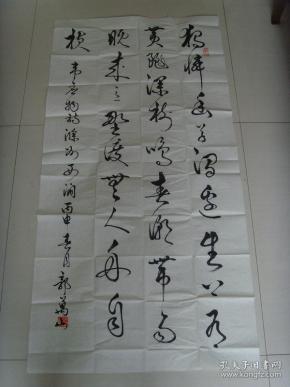 独怜幽草涧边生上有
黄鹂深树鸣春潮带雨
晚来急野渡无人舟自
横 韦应物诗滁州西涧 丙申春月 郭万
孔夫子旧书网